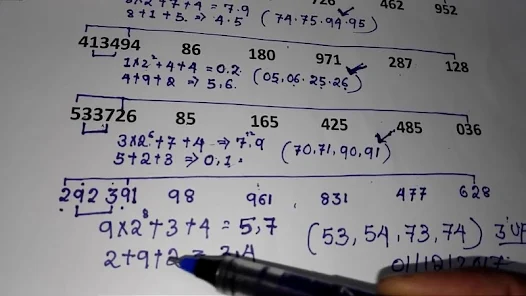 8+1+5 ⇒ 4.5 (74.75.94.95)
462 952
413494 86 180 971 287 128
1×2²+4+4=0.2. (05,06.25.26)
4+9+2 ⇒ 5,6.
533726 85 165 425 485 036
3×2⁶+7+4 ⇒ 7¹².9 (70,71,90,91)
5+2+3 ⇒ 0,1.
292391 98 961 831 477 628
9×2⁸+3+4 = 5,7 (53,54,73,74)
2+9+2 = 3.4